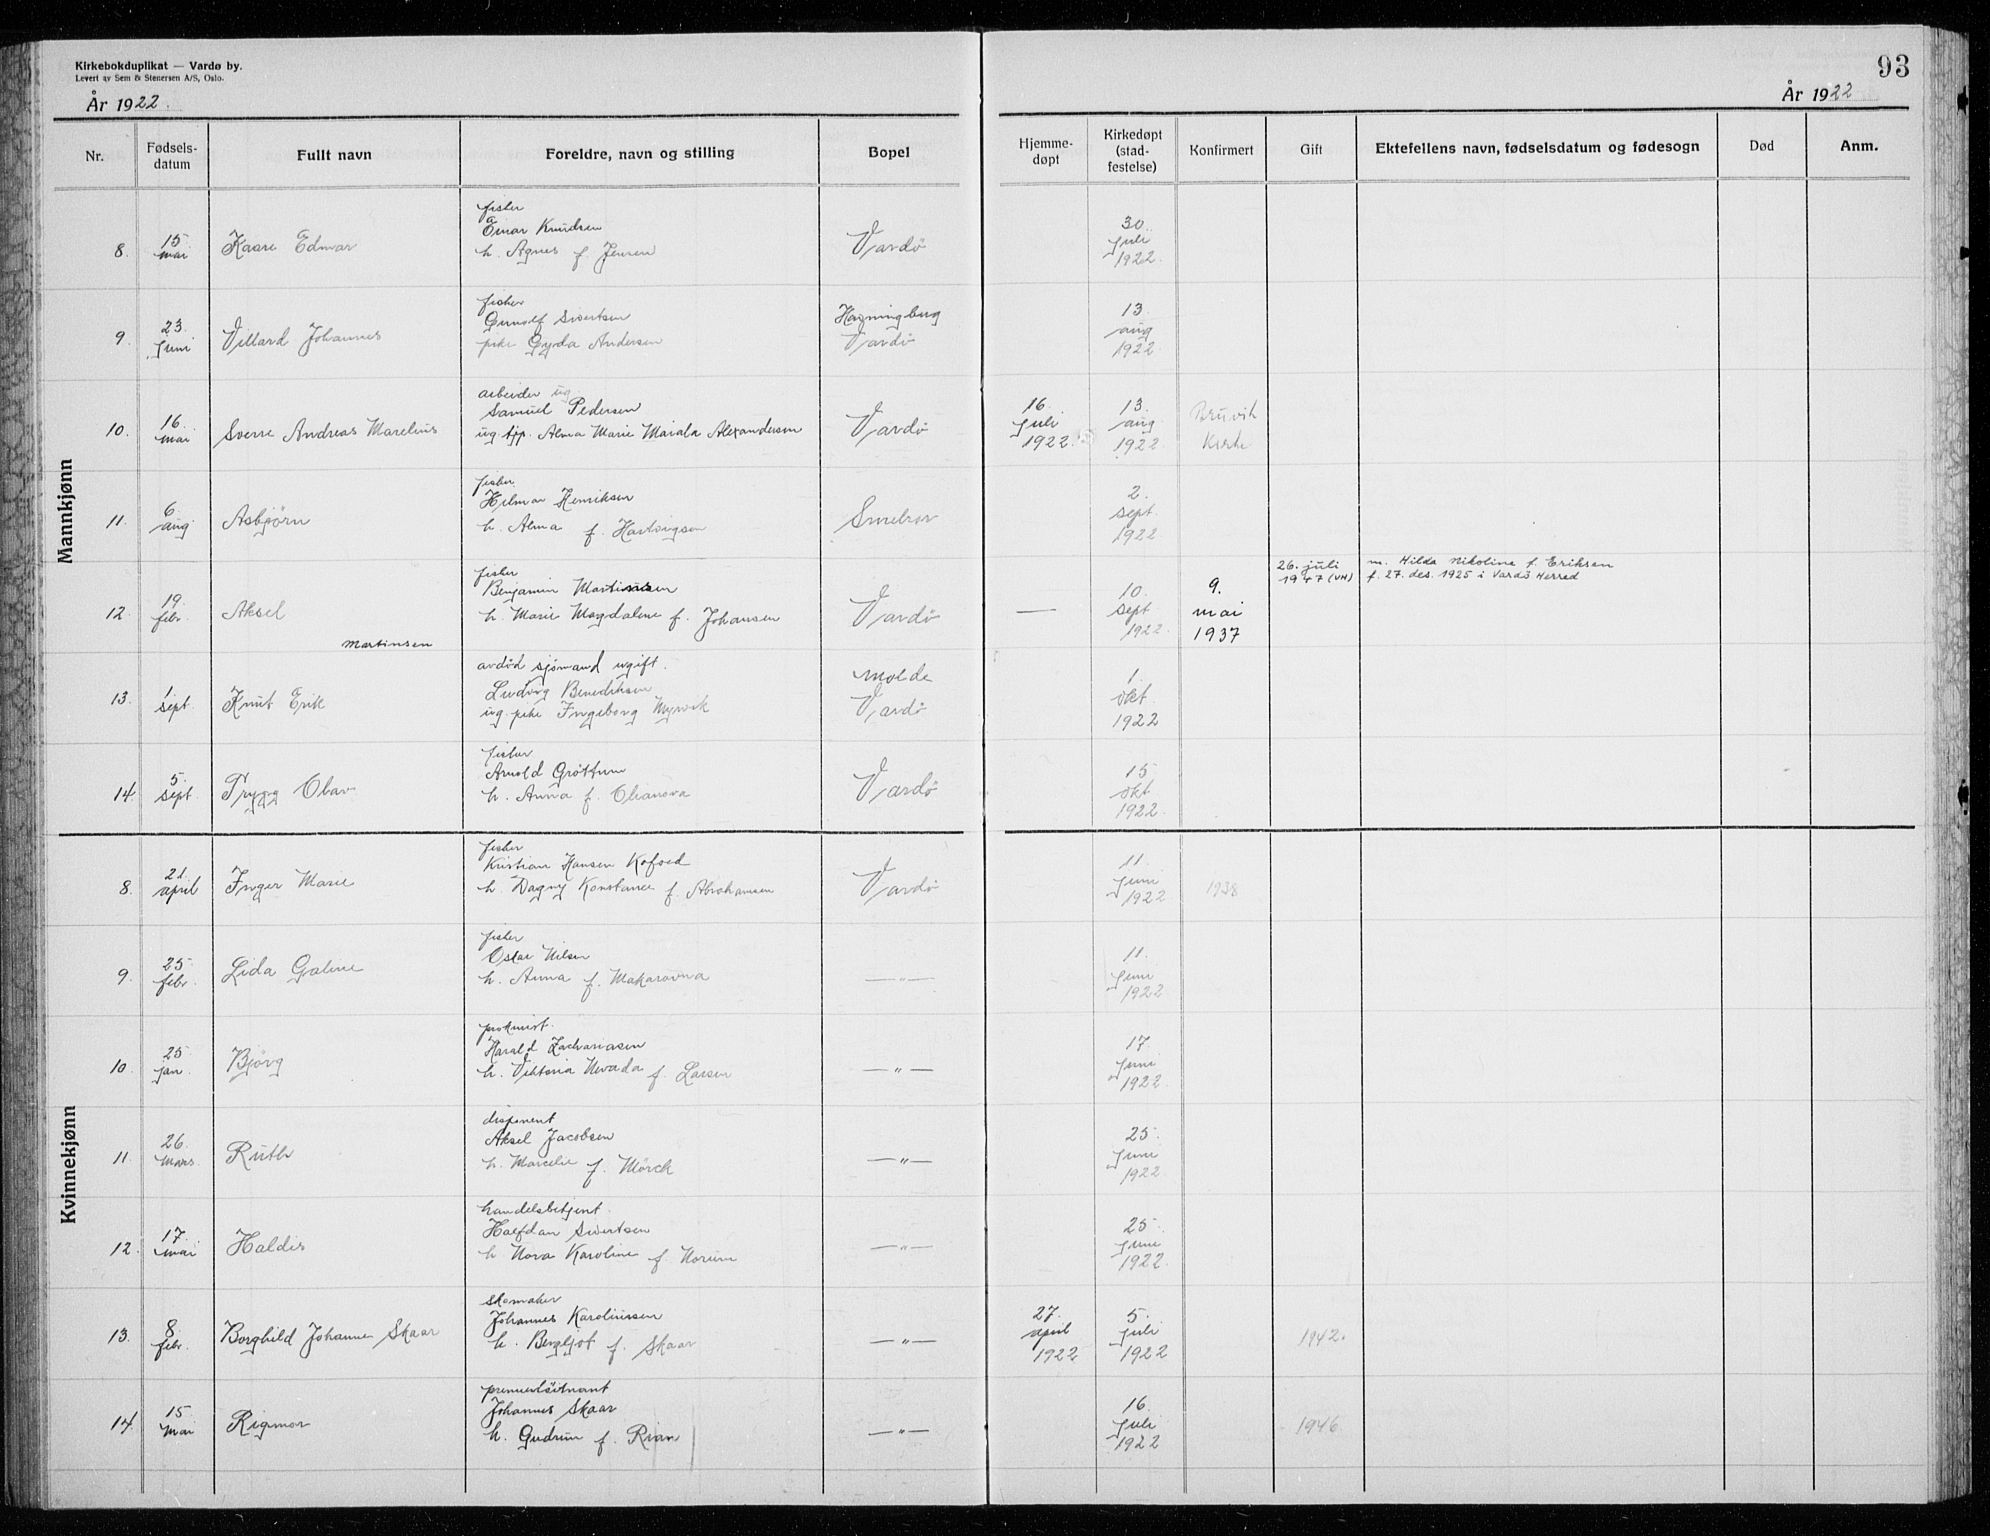 Kirkebokduplikat — Vardø by.
Levert av Sem & Stenersen A/S, Oslo.
År 1922.
93
År 1922
Nr.
Fødsels-
datum
Fullt navn
Foreldre, navn og stilling
Bopel
Hjemme-
døpt
Kirkedøpt
(stad-
festelse)
Konfirmert
Gift
Ektefellens navn, fødselsdatum og fødesogn
Død
Anm.
Mannkjønn
8.
15.
mai
Kaare Edmar
fisker
Einar Knudsen
h. Agnes f. Jensen
Vardø
30.
juli
1922.
9.
23.
juni
Villard Johannes
fisker
Sivertsen
pike Gyda Andersen
Havningberg
Vardø
13.
aug
1922.
10.
16.
mai
Sverre Andreas Marelius
arbeider ug
Samuel Pedersen
ug. tjp. Alma Marie Maiala Alexandersen
Vardø
16.
juli
1922.
13.
aug
1922.
Bruvik
Kirke
11.
6.
aug.
Asbjørn
fisker
Hilmar Henriksen
h. Alma f. Hartvigsen
Smelror
2.
sept.
1922.
12
19.
febr.
Aksel
Martinsen
fisker
Benjamin Martinsen
h. Marie Magdalene f. Johansen
Vardø
—
10.
sept
1922.
9.
mai
1937
26. juli
1947 (VH)
m. Hilda Nikoline f. Eriksen
f. 27. des. 1925 i Vardö Herred
13.
1.
sept.
Knut Erik
avdød sjömand ugift.
Ludvig Benediksen
ug. pike Ingeborg Myrvik
Molde
Vardø
1.
okt.
1922
14.
5.
sept.
Trygg Olav
fisker
Arnold Gröttum
h. Anna f.
Vardø
15
okt
1922.
Kvinnekjønn
8.
21.
april
Inger Marie
fisker
Kristian Hansen Kofoed
h. Dagny Konstance f. Abrahamsen
Vardø
11.
juni
1922
1938
9.
25.
febr.
Lida Galine
fisker
Oskar Nilsen
h. Anna f. Makarovna
—"—
11.
juni
1922
10.
25
jan.
Bjørg
prokurist.
Harald Zachariasen
h. Viktoria Nevada f. Larsen
—"—
17.
juni
1922.
11.
26.
mars.
Ruth
disponent
Aksel Jacobsen
h. Marcelie f. Mörck
—"—
25.
juni
1922.
12.
17.
mai
Haldis
handelsbetjent.
Halfdan Sivertsen
h. Nora Karoline f. Norum
—"—
25.
juni
1922.
13.
8.
febr.
Borghild Johanne Skaar
skomaker
Johannes Karoliussen
h. Bergljot f. Skaar
—"—
27.
april
1922
5.
juli
1922
1942.
14.
15.
mai
Rigmor
premierlöitnant
Johannes Skaar
h. Gudrun f. Rian
—"—
16.
juli
1922
1946